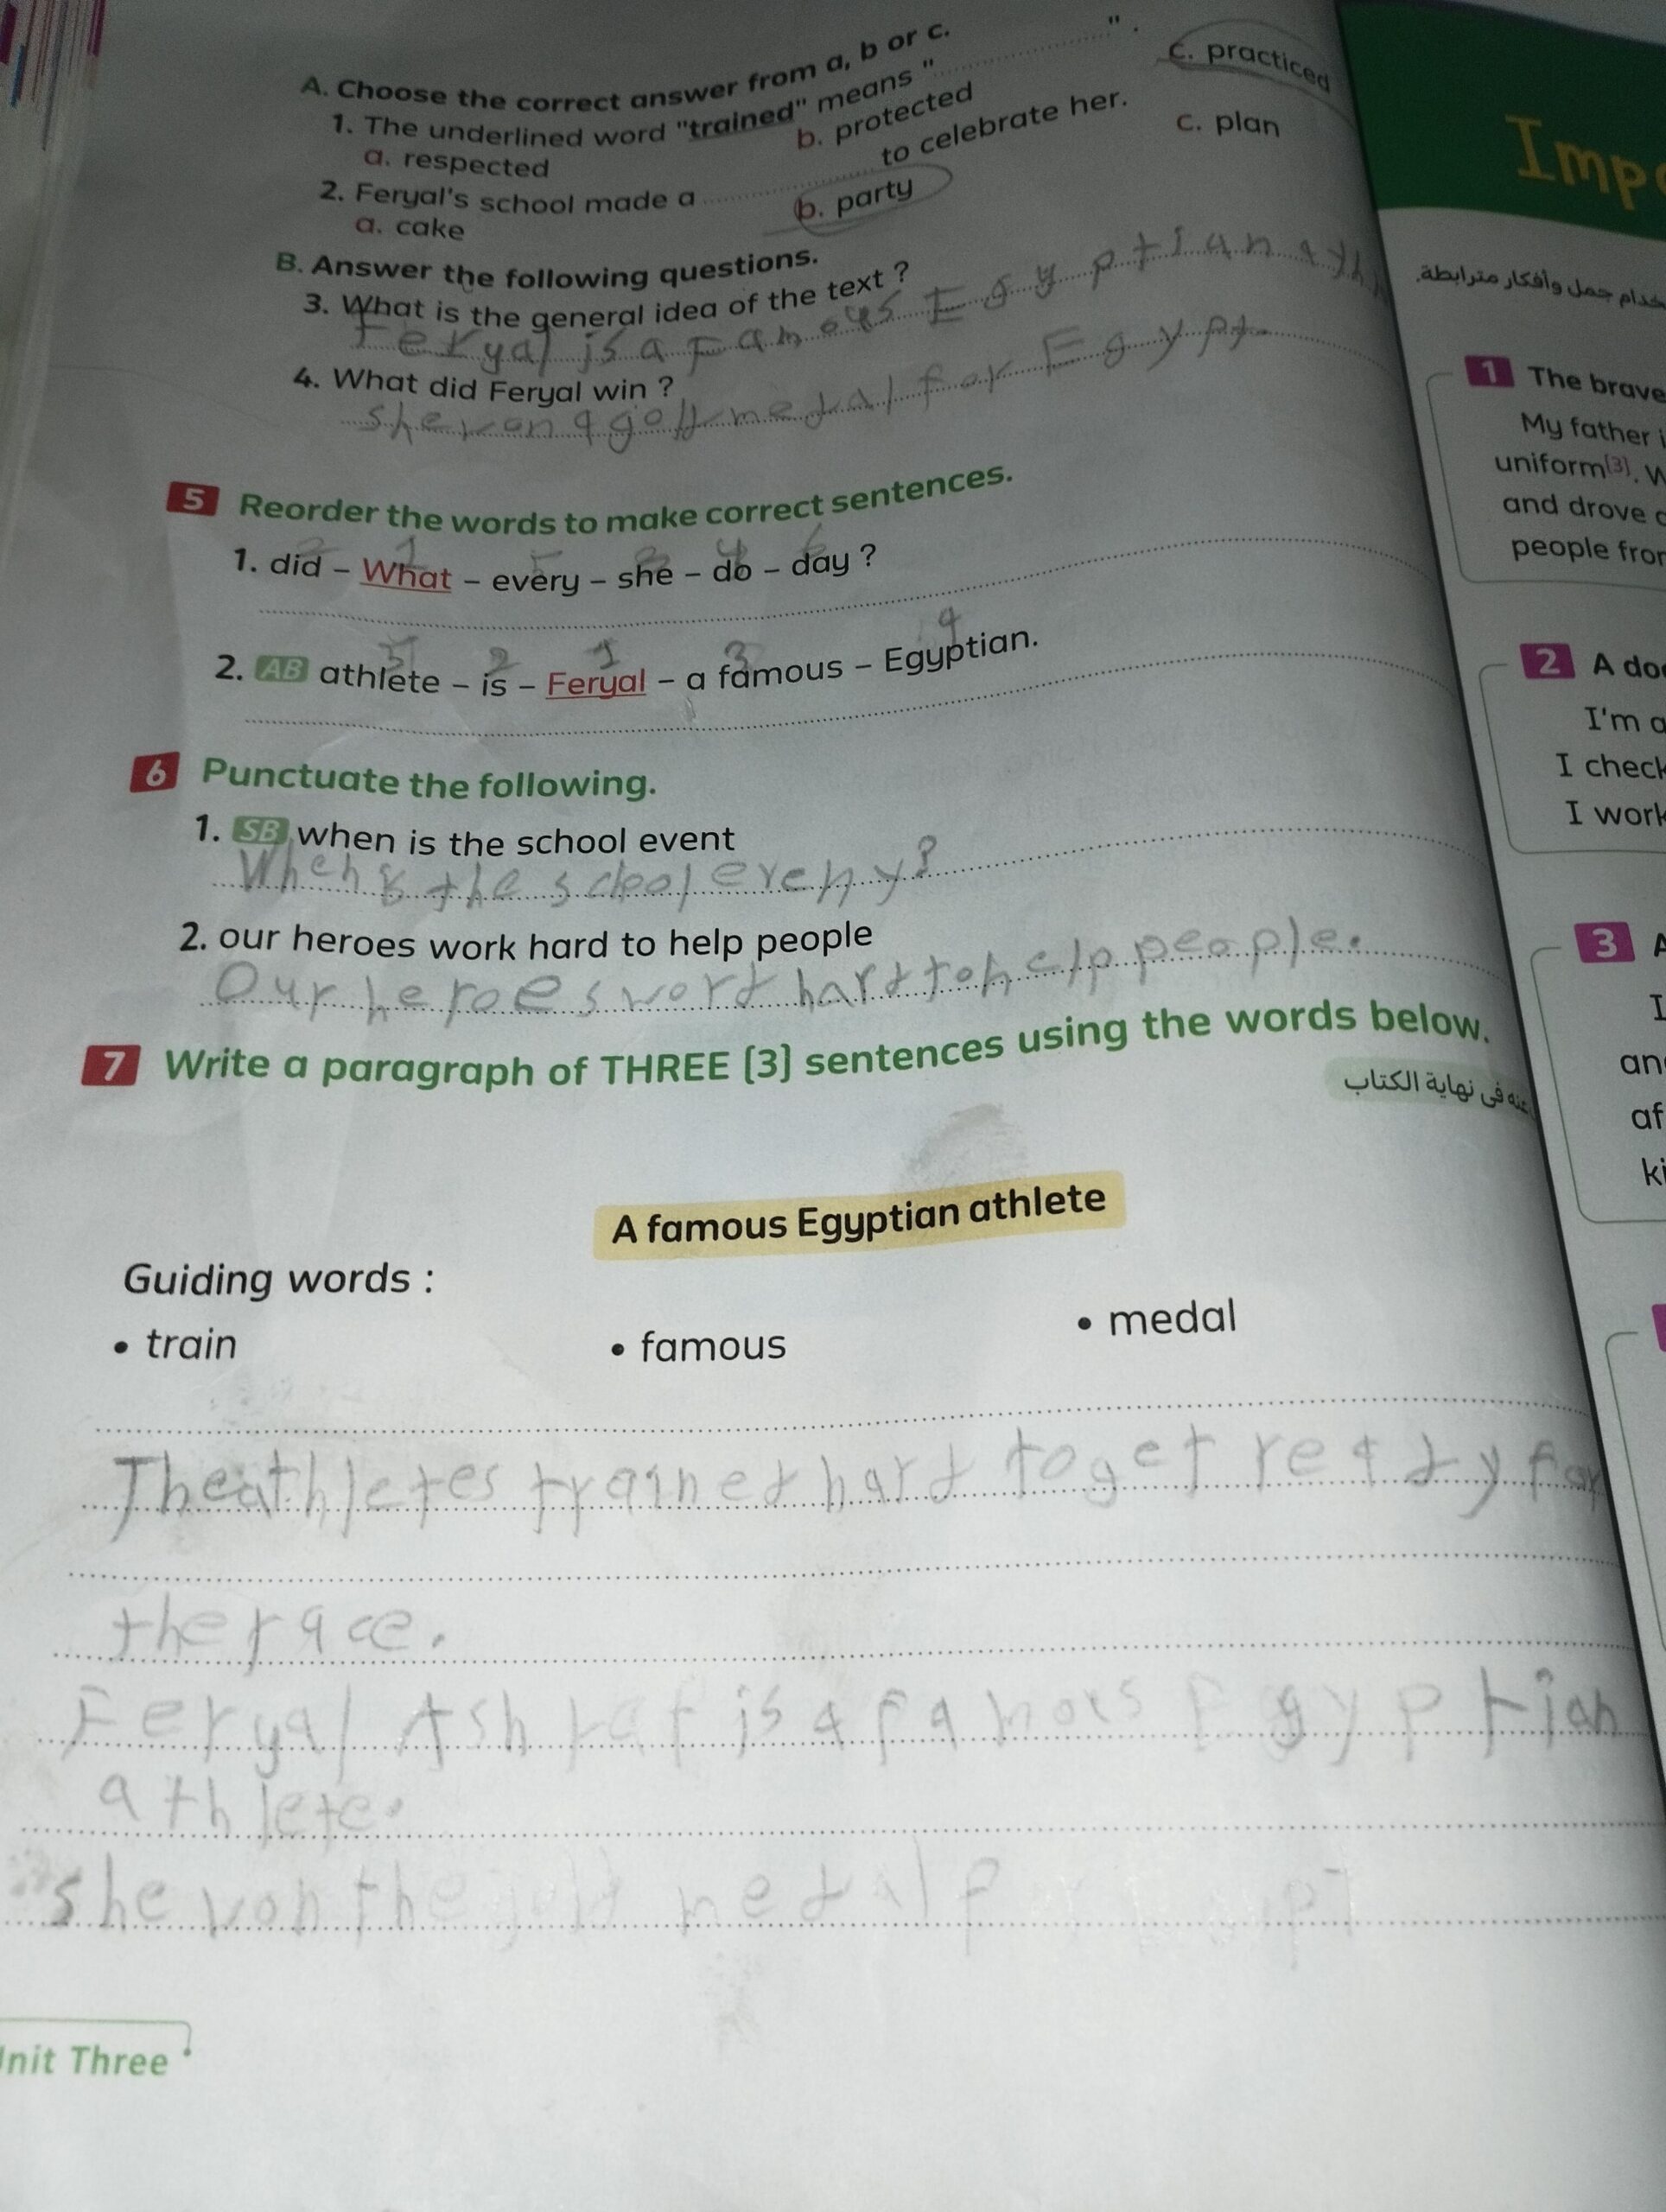 A. Choose the correct answer from a, b or c.
1. The underlined word "trained" means "..............................".
a. respected b. protected c. practiced
2. Feryal's school made a .................... to celebrate her.
a. cake b. party c. plan
B. Answer the following questions.
3. What is the general idea of the text ?
Feryal is a Famous Egyptian
4. What did Feryal win ?
she won a gold medal for Egypt.
5 Reorder the words to make correct sentences.
2 1 5 3 4 6
1. did – What – every – she – do – day ?
5 2 1 3 4
2. AB athlete – is – Feryal – a famous – Egyptian.
6 Punctuate the following.
1. SB when is the school event
When is the school eveny?
2. our heroes work hard to help people
Our heroes word hard to help people.
7 Write a paragraph of THREE (3) sentences using the words below.
فى نهاية الكتاب
A famous Egyptian athlete
Guiding words :
• train • famous • medal
The athletes trained hard to get ready for
the race.
Feryal Ashraf is a famous Egyptian
athlete.
she won the gold medal
Unit Three
جمل وأفكار مترابطة.
1 The brave
My father
uniform(3).
and drove
people
2 A
I'm
I check
I work
3